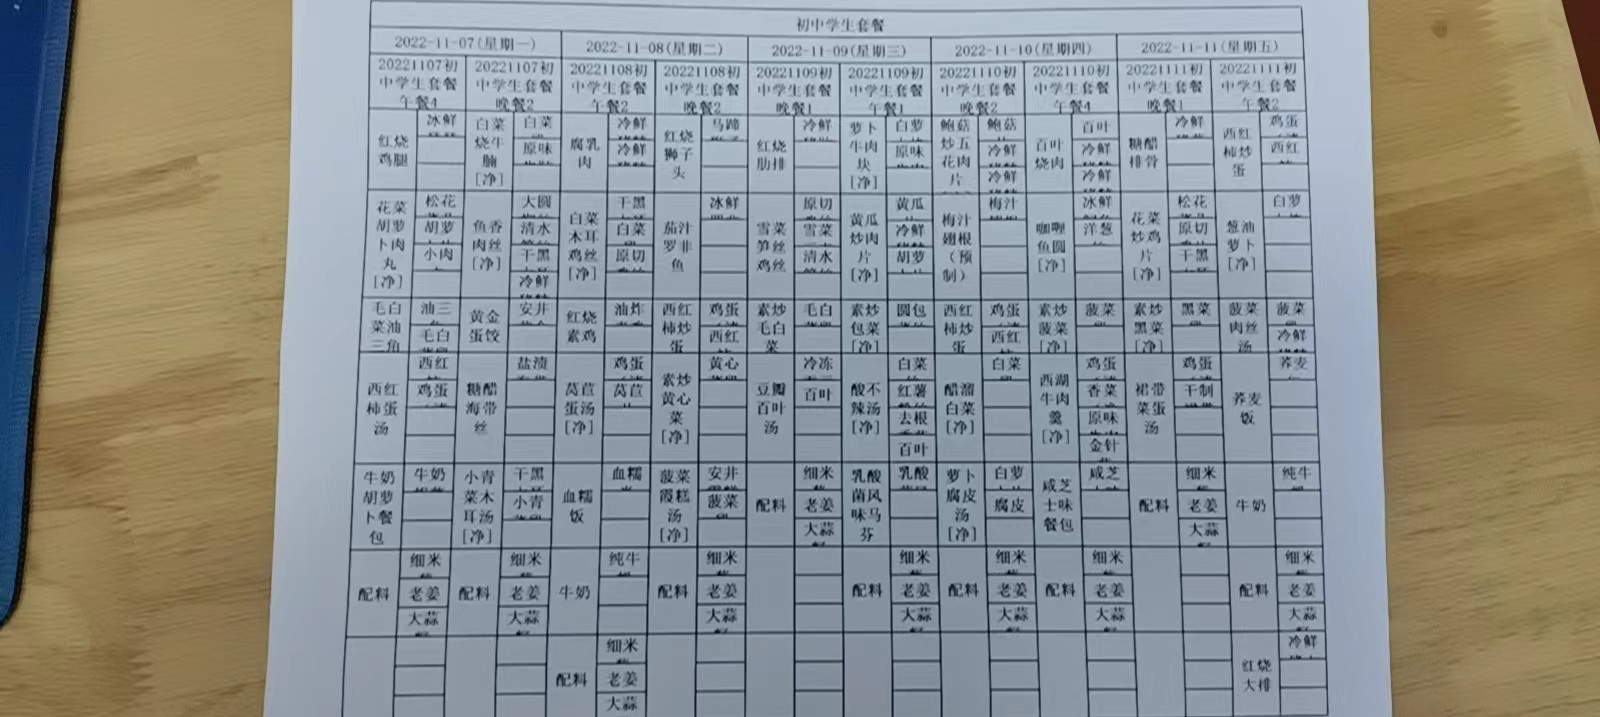 初中学生套餐
2022-11-07(星期一) 2022-11-08(星期二) 2022-11-09(星期三) 2022-11-10(星期四) 2022-11-11(星期五)
20221107初 20221107初 20221108初 20221108初 20221109初 20221109初 20221110初 20221110初 20221111初 20221111初
中学生套餐 中学生套餐 中学生套餐 中学生套餐 中学生套餐 中学生套餐 中学生套餐 中学生套餐 中学生套餐 中学生套餐
午餐4 晚餐2 午餐2 晚餐2 晚餐1 午餐1 晚餐2 午餐4 晚餐1 午餐2
红烧鸡腿 冰鲜 白菜烧牛腩[净] 白菜 原味 腐乳肉 冷鲜 冷鲜 红烧狮子头 马蹄 红烧肋排 冷鲜 萝卜牛肉块[净] 白萝 原味 鲍菇炒五花肉片 鲍菇 冷鲜 冷鲜 百叶烧肉 百叶 冷鲜 冷鲜 糖醋排骨 冷鲜 西红柿炒蛋 鸡蛋 西红
花菜胡萝卜肉丸[净] 松花 胡萝 小肉 鱼香肉丝[净] 大圆 清水 干黑 冷鲜 白菜木耳鸡丝[净] 干黑 白菜 原切 茄汁罗非鱼 冰鲜 雪菜笋丝鸡丝 原切 雪菜 清水 黄瓜炒肉片[净] 黄瓜 冷鲜 胡萝 梅汁翅根(预制) 梅汁 咖喱鱼圆[净] 冰鲜 洋葱 花菜炒鸡片[净] 松花 原切 干黑 葱油萝卜[净] 白萝
毛白菜油三角 油三 毛白 黄金蛋饺 安井 红烧素鸡 油炸 西红柿炒蛋 鸡蛋 西红 素炒毛白菜 毛白 素炒包菜[净] 圆包 西红柿炒蛋 鸡蛋 西红 素炒菠菜[净] 菠菜 素炒黑菜[净] 黑菜 菠菜肉丝汤 菠菜 冷鲜
西红柿蛋汤 西红 鸡蛋 糖醋海带丝 盐渍 莴苣蛋汤[净] 鸡蛋 莴苣 素炒黄心菜[净] 黄心 豆瓣百叶汤 冷冻 百叶 酸不辣汤[净] 白菜 红薯 去根 百叶 醋溜白菜[净] 白菜 西湖牛肉羹[净] 鸡蛋 香菜 原味 金针 裙带菜蛋汤 鸡蛋 干制 荞麦饭 荞麦
牛奶胡萝卜餐包 牛奶 小青菜木耳汤[净] 干黑 小青 血糯饭 血糯 菠菜霞糕汤[净] 安井 菠菜 配料 细米 老姜 大蒜 乳酸菌风味马芬 乳酸 萝卜腐皮汤[净] 白萝 腐皮 咸芝士味餐包 咸芝 配料 细米 老姜 大蒜 牛奶 纯牛
配料 细米 老姜 大蒜 配料 细米 老姜 大蒜 牛奶 纯牛 配料 细米 老姜 大蒜 配料 细米 老姜 大蒜 配料 细米 老姜 大蒜 配料 细米 老姜 大蒜 配料 细米 老姜 大蒜
配料 细米 老姜 大蒜 红烧大排 冷鲜